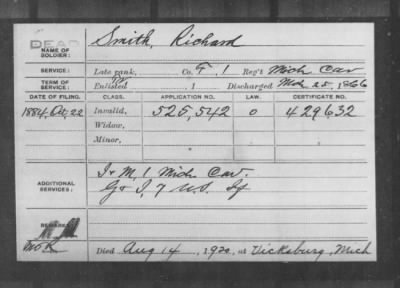 DEAD
NAME OF SOLDIER: Smith, Richard
SERVICE: Late rank, Co. F, 1 Reg't Mich Cav
TERM OF SERVICE: Enlisted , 1 Discharged Mch 25, 1866
DATE OF FILING. CLASS. APPLICATION NO. LAW. CERTIFICATE NO.
1884, Oct, 22 Invalid, 525,542 0 429632
Widow,
Minor,
ADDITIONAL SERVICES: I & M, 1 Mich Cav.
G & I, 7 U.S. If
REMARKS:
Died Aug 14, 1920, at Vicksburg, Mich